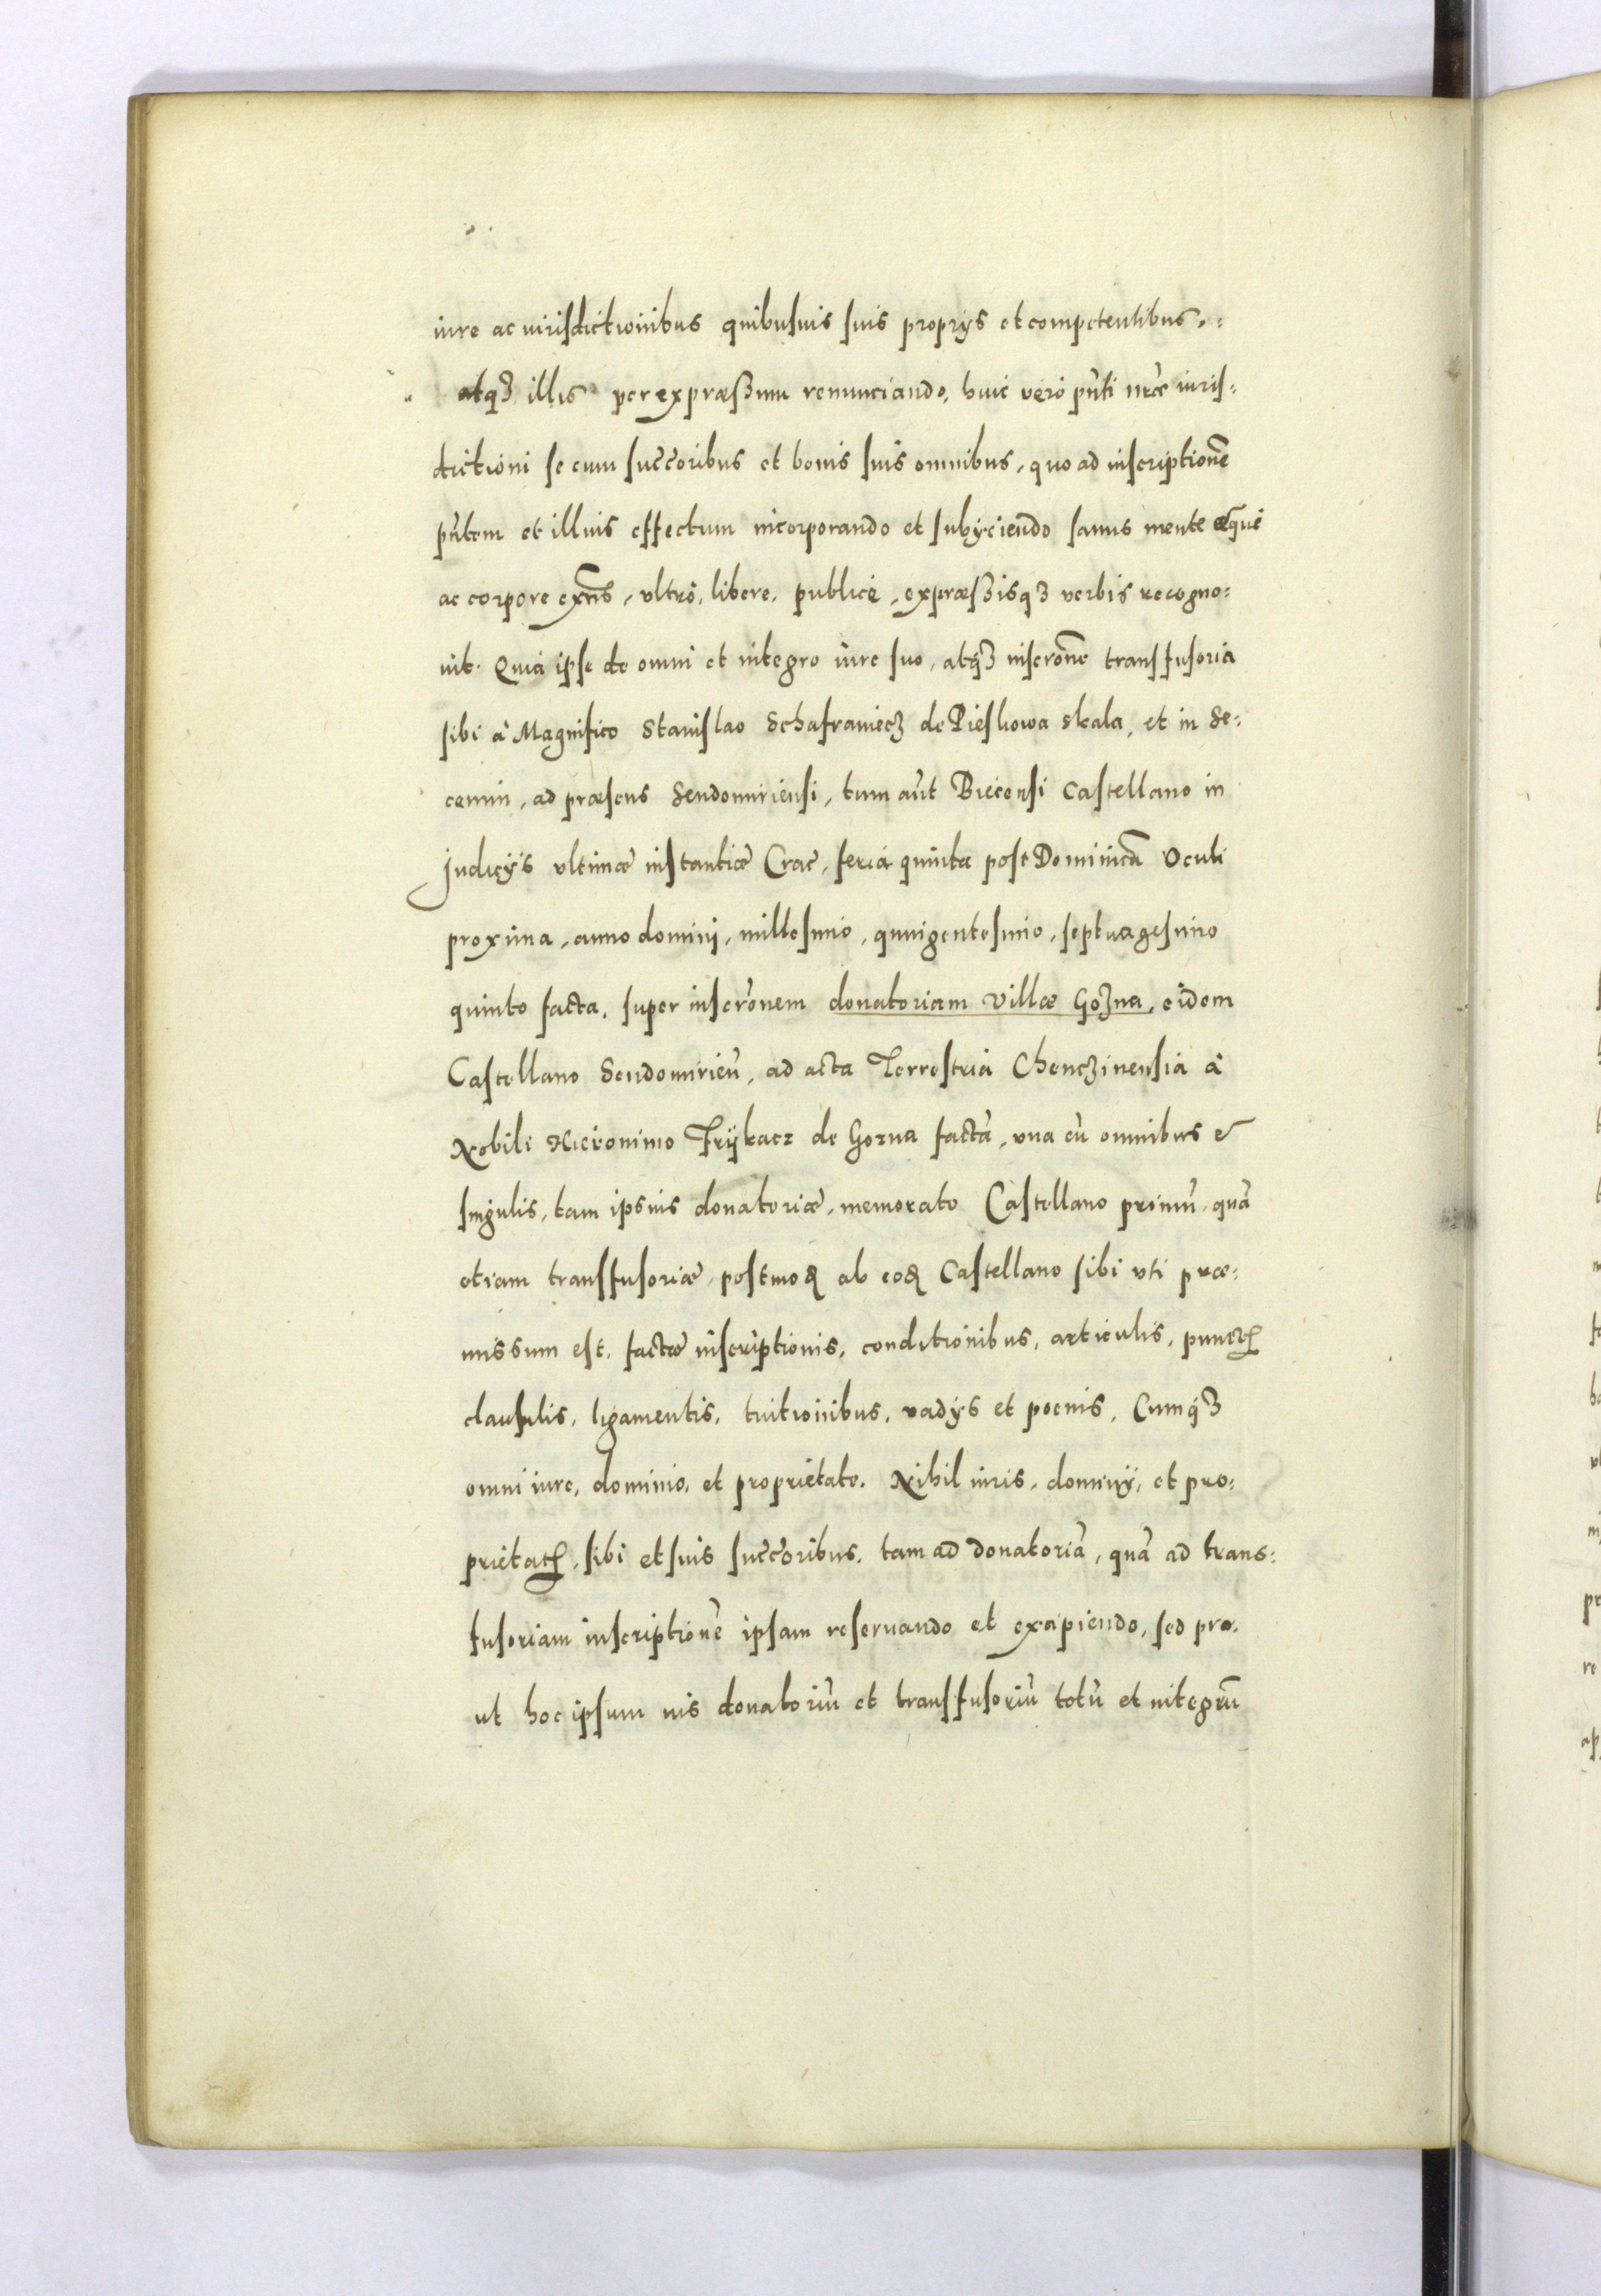 iure ac iurisdictionibus quibusuis suis proprijs et competentibus,
atq3 illis per expræssum renunciando, huic verò pñti nræ iuris-
dictioni se cum succ̃oribus et bonis suis omnibus, quo ad inscriptionẽ
pñtem et illius effectum incorporando et subijciendo sanus mente æque
ac corpore exñs, vltrò, libere, publicè, expræssisq3 verbis recogno-
uit. Quia ipse de omni et integro iure suo, atq3 inscrõne transfusoria
sibi à Magnifico Stanislao Schafraniecz de Pieskowa skala, et in Se-
cemin, ad præsens Sendomiriensi, tum aũt Biecensi Castellano in
Judicijs vltimæ instantiæ Crac, feria quinta post Dominicã Oculi
proxima, anno dominj, millesimo, quingentesimo, septuagesimo
quinto facta, super inscrõnem donatoriam villæ Gozna, eidem
Castellano Sendomirieñ, ad acta Terrestria Chenczinensia à
Nobili Hieronimo Frykacz de Gozna factã, vna cũ omnibus &
singulis, tam ipsius donatoriæ, memorato Castellano primũ, quã
etiam transfusoriæ, postmođ ab eođ Castellano sibi vti præ-
missum est, factæ inscriptionis, conditionibus, articulis, punctis
clausulis, ligamentis, tuitionibus, vadijs et poenis, Cumq3
omni iure, dominio, et proprietate. Nihil iuris, dominij, et pro-
prietatis, sibi et suis succ̃oribus, tam ad donatoriã, quã ad trans-
fusoriam inscriptionẽ ipsam reseruando et excipiendo, sed pro-
ut hoc ipsum ius donatoriũ et transfusoriũ totũ et integrũ